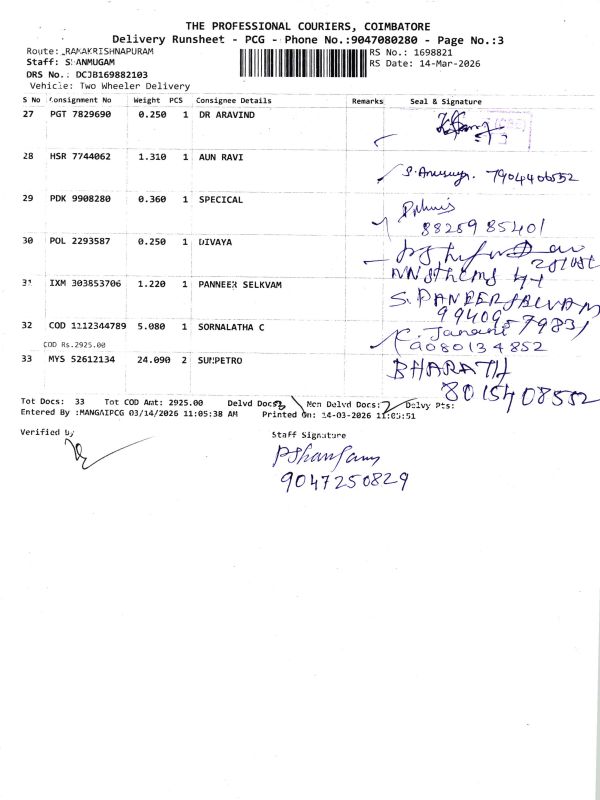 THE PROFESSIONAL COURIERS, COIMBATORE
Delivery Runsheet - PCG - Phone No.:9047080280 - Page No.:3
Route: RAMAKRISHNAPURAM RS No.: 1698821
Staff: SHANMUGAM RS Date: 14-Mar-2026
DRS No.: DCJB169882103
Vehicle: Two Wheeler Delivery
S No Consignment No Weight PCS Consignee Details Remarks Seal & Signature
27 PGT 7829690 0.250 1 DR ARAVIND
28 HSR 7744062 1.310 1 AUN RAVI S. Anusuya. 7904406552
29 PDK 9908280 0.360 1 SPECICAL
88259 85401
30 POL 2293587 0.250 1 DIVAYA
31 IXM 303853706 1.220 1 PANNEER SELKVAM S. PANEERSALVAM
9940957983
32 COD 1112344789 5.080 1 SORNALATHA C
COD Rs.2925.00 9080134852
33 MYS 52612134 24.090 2 SUMPETRO BHARATH
8015408552
Tot Docs: 33 Tot COD Amt: 2925.00 Delvd Docs: Non Delvd Docs: Delvy Pts:
Entered By :MANGAIPCG 03/14/2026 11:05:38 AM Printed On: 14-03-2026 11:05:51
Verified by Staff Signature
9047250829